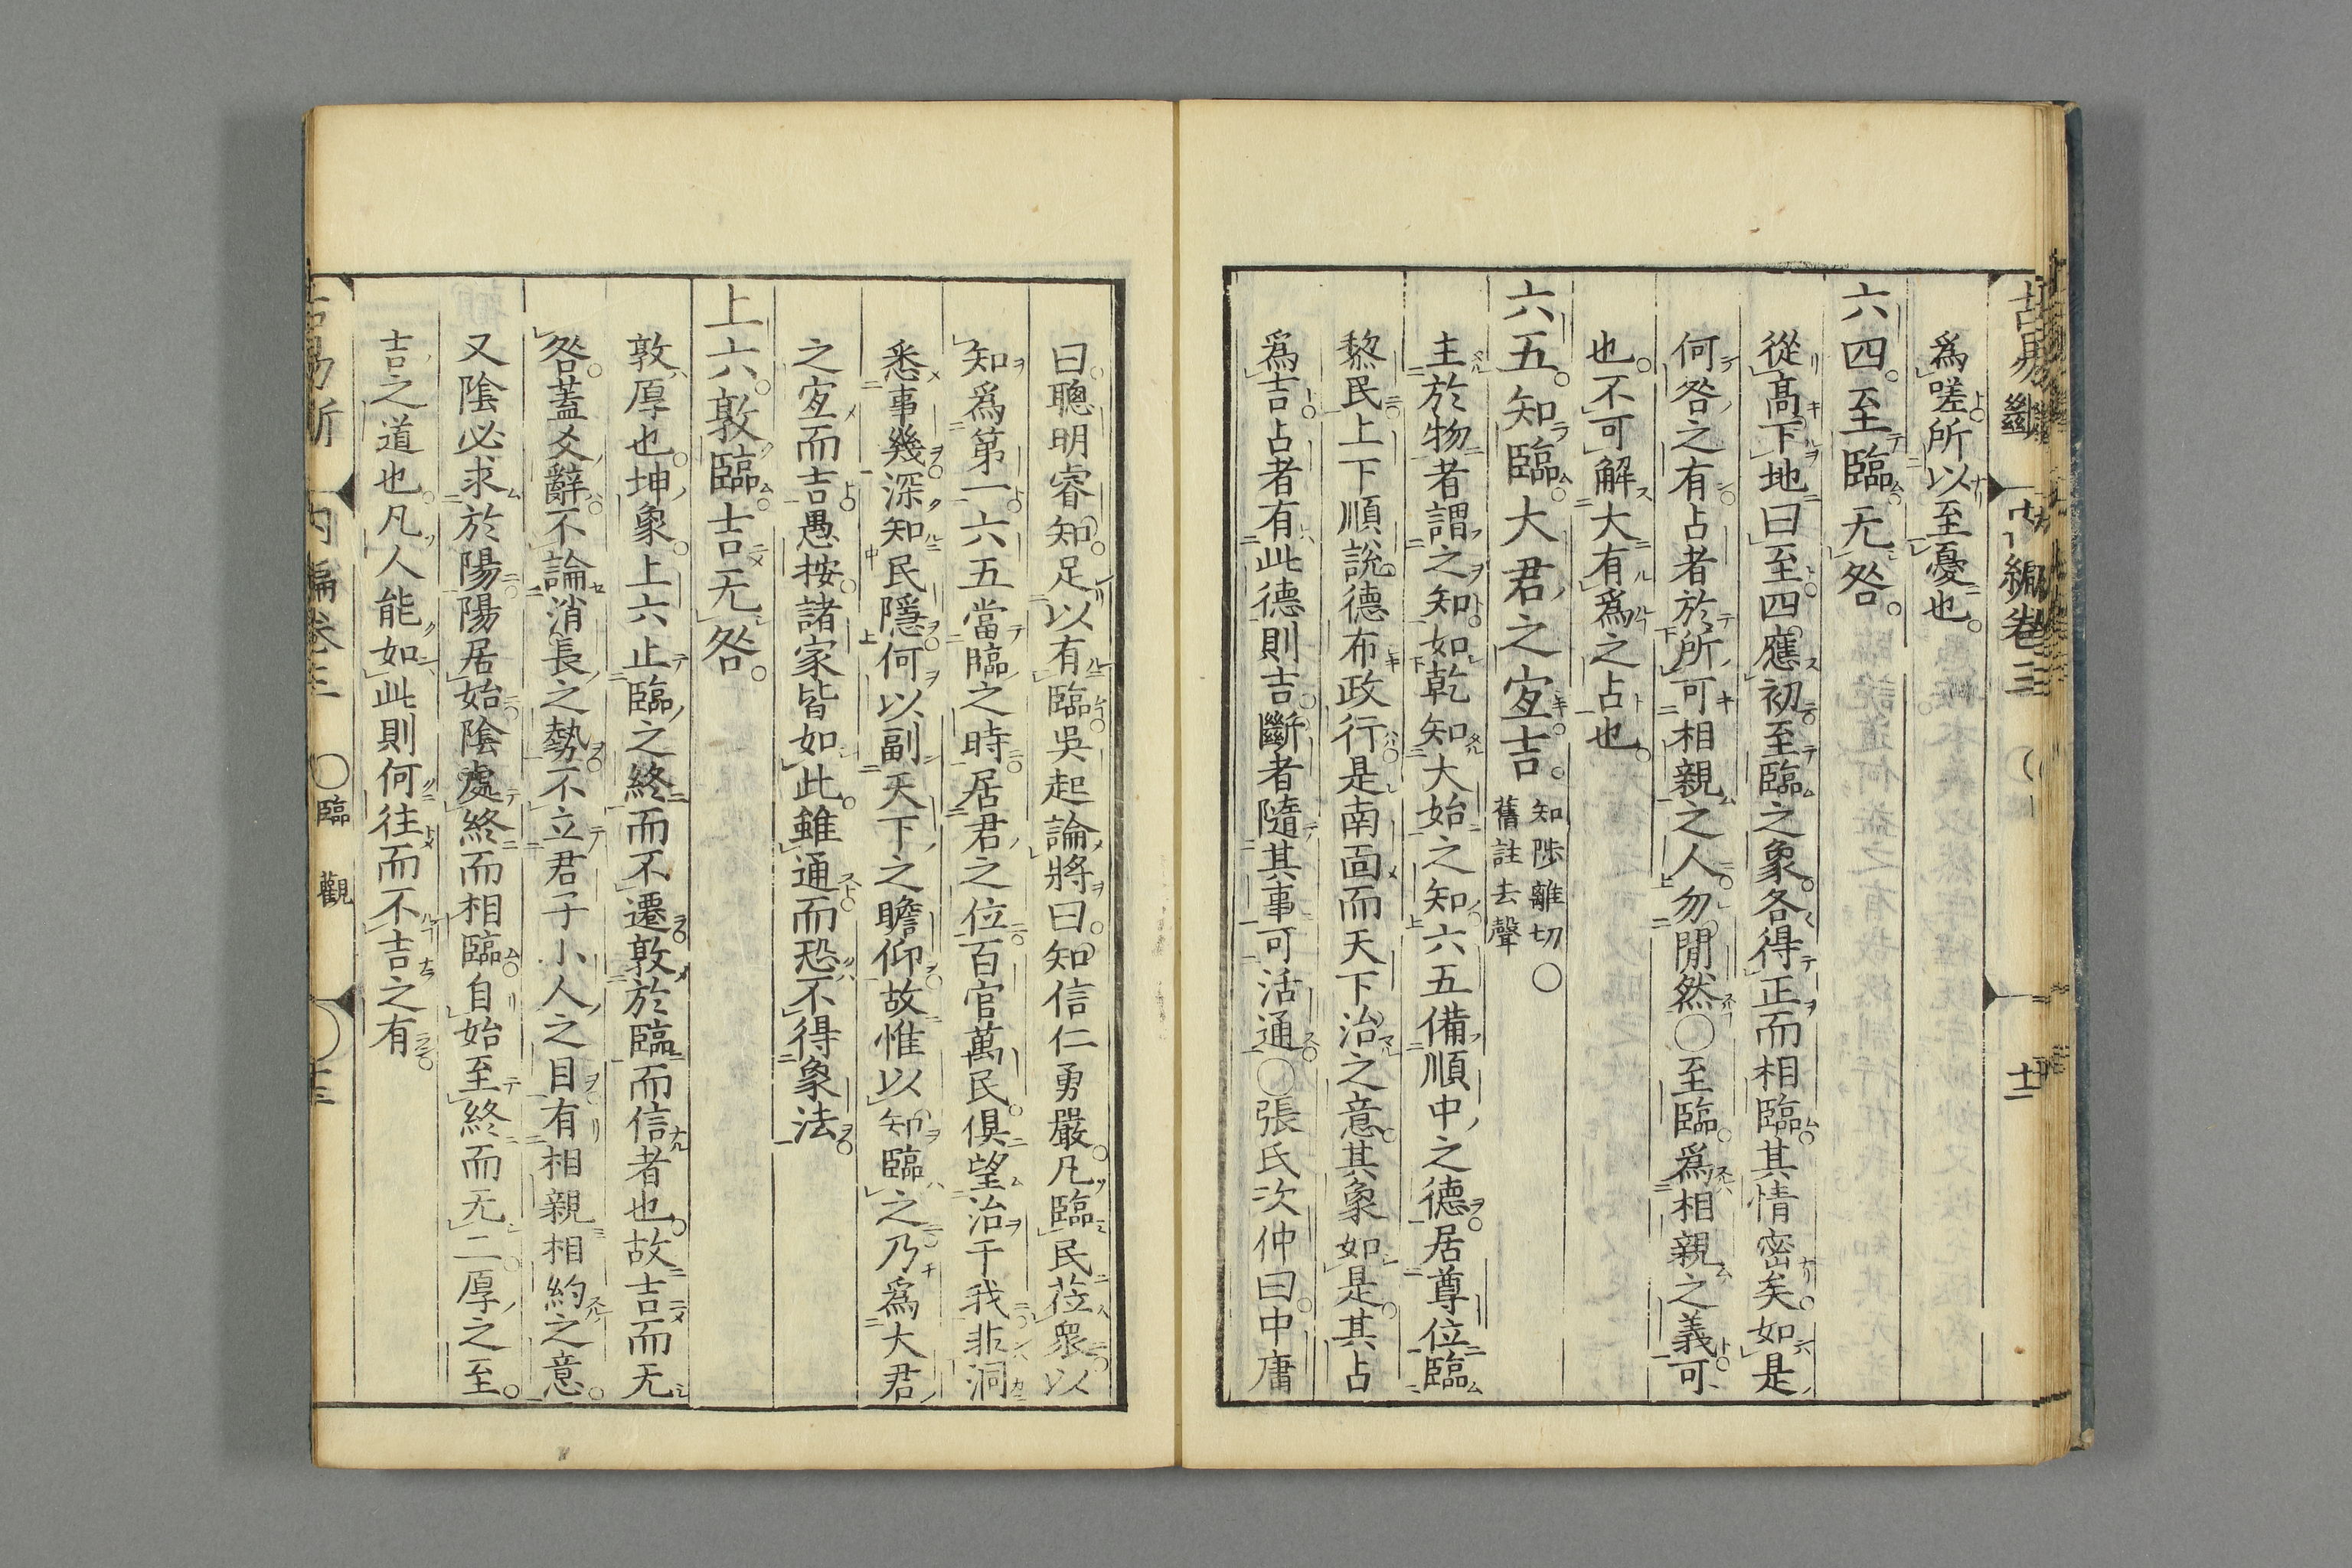 爲嗟所以至憂也
六四至臨无咎
從高下地曰至四應初至臨之象各得正而相臨其情密矣如是
何咎之有占者於所可相親之人勿閒然〇至臨爲相親之義可
也不可解大有爲之占也
六五知臨大君之宜吉 知陟離切 舊註去聲〇
主於物者謂之知如乾知大始之知六五備順中之德居尊位臨
黎民上下順說德布政行是南面而天下治之意其象如是其占
爲吉占者有此德則吉斷者隨其事可活通〇張氏次仲曰中庸
曰聰明睿知足以有臨吳起論將曰知信仁勇嚴凡臨民莅衆以
知爲第一六五當臨之時居君之位百官萬民俱望治于我非洞
悉事幾深知民隱何以副天下之瞻仰故惟以知臨之乃爲大君
之宜而吉愚按諸家皆如此雖通而恐不得象法
上六敦臨吉无咎
敦厚也坤象上六止臨之終而不遷敦於臨而信者也故吉而无
咎蓋爻辭不論消長之勢不立君子小人之目有相親相約之意
又陰必求於陽陽居始陰處終而相臨自始至終而无二厚之至
吉之道也凡人能如此則何往而不吉之有
臨 觀